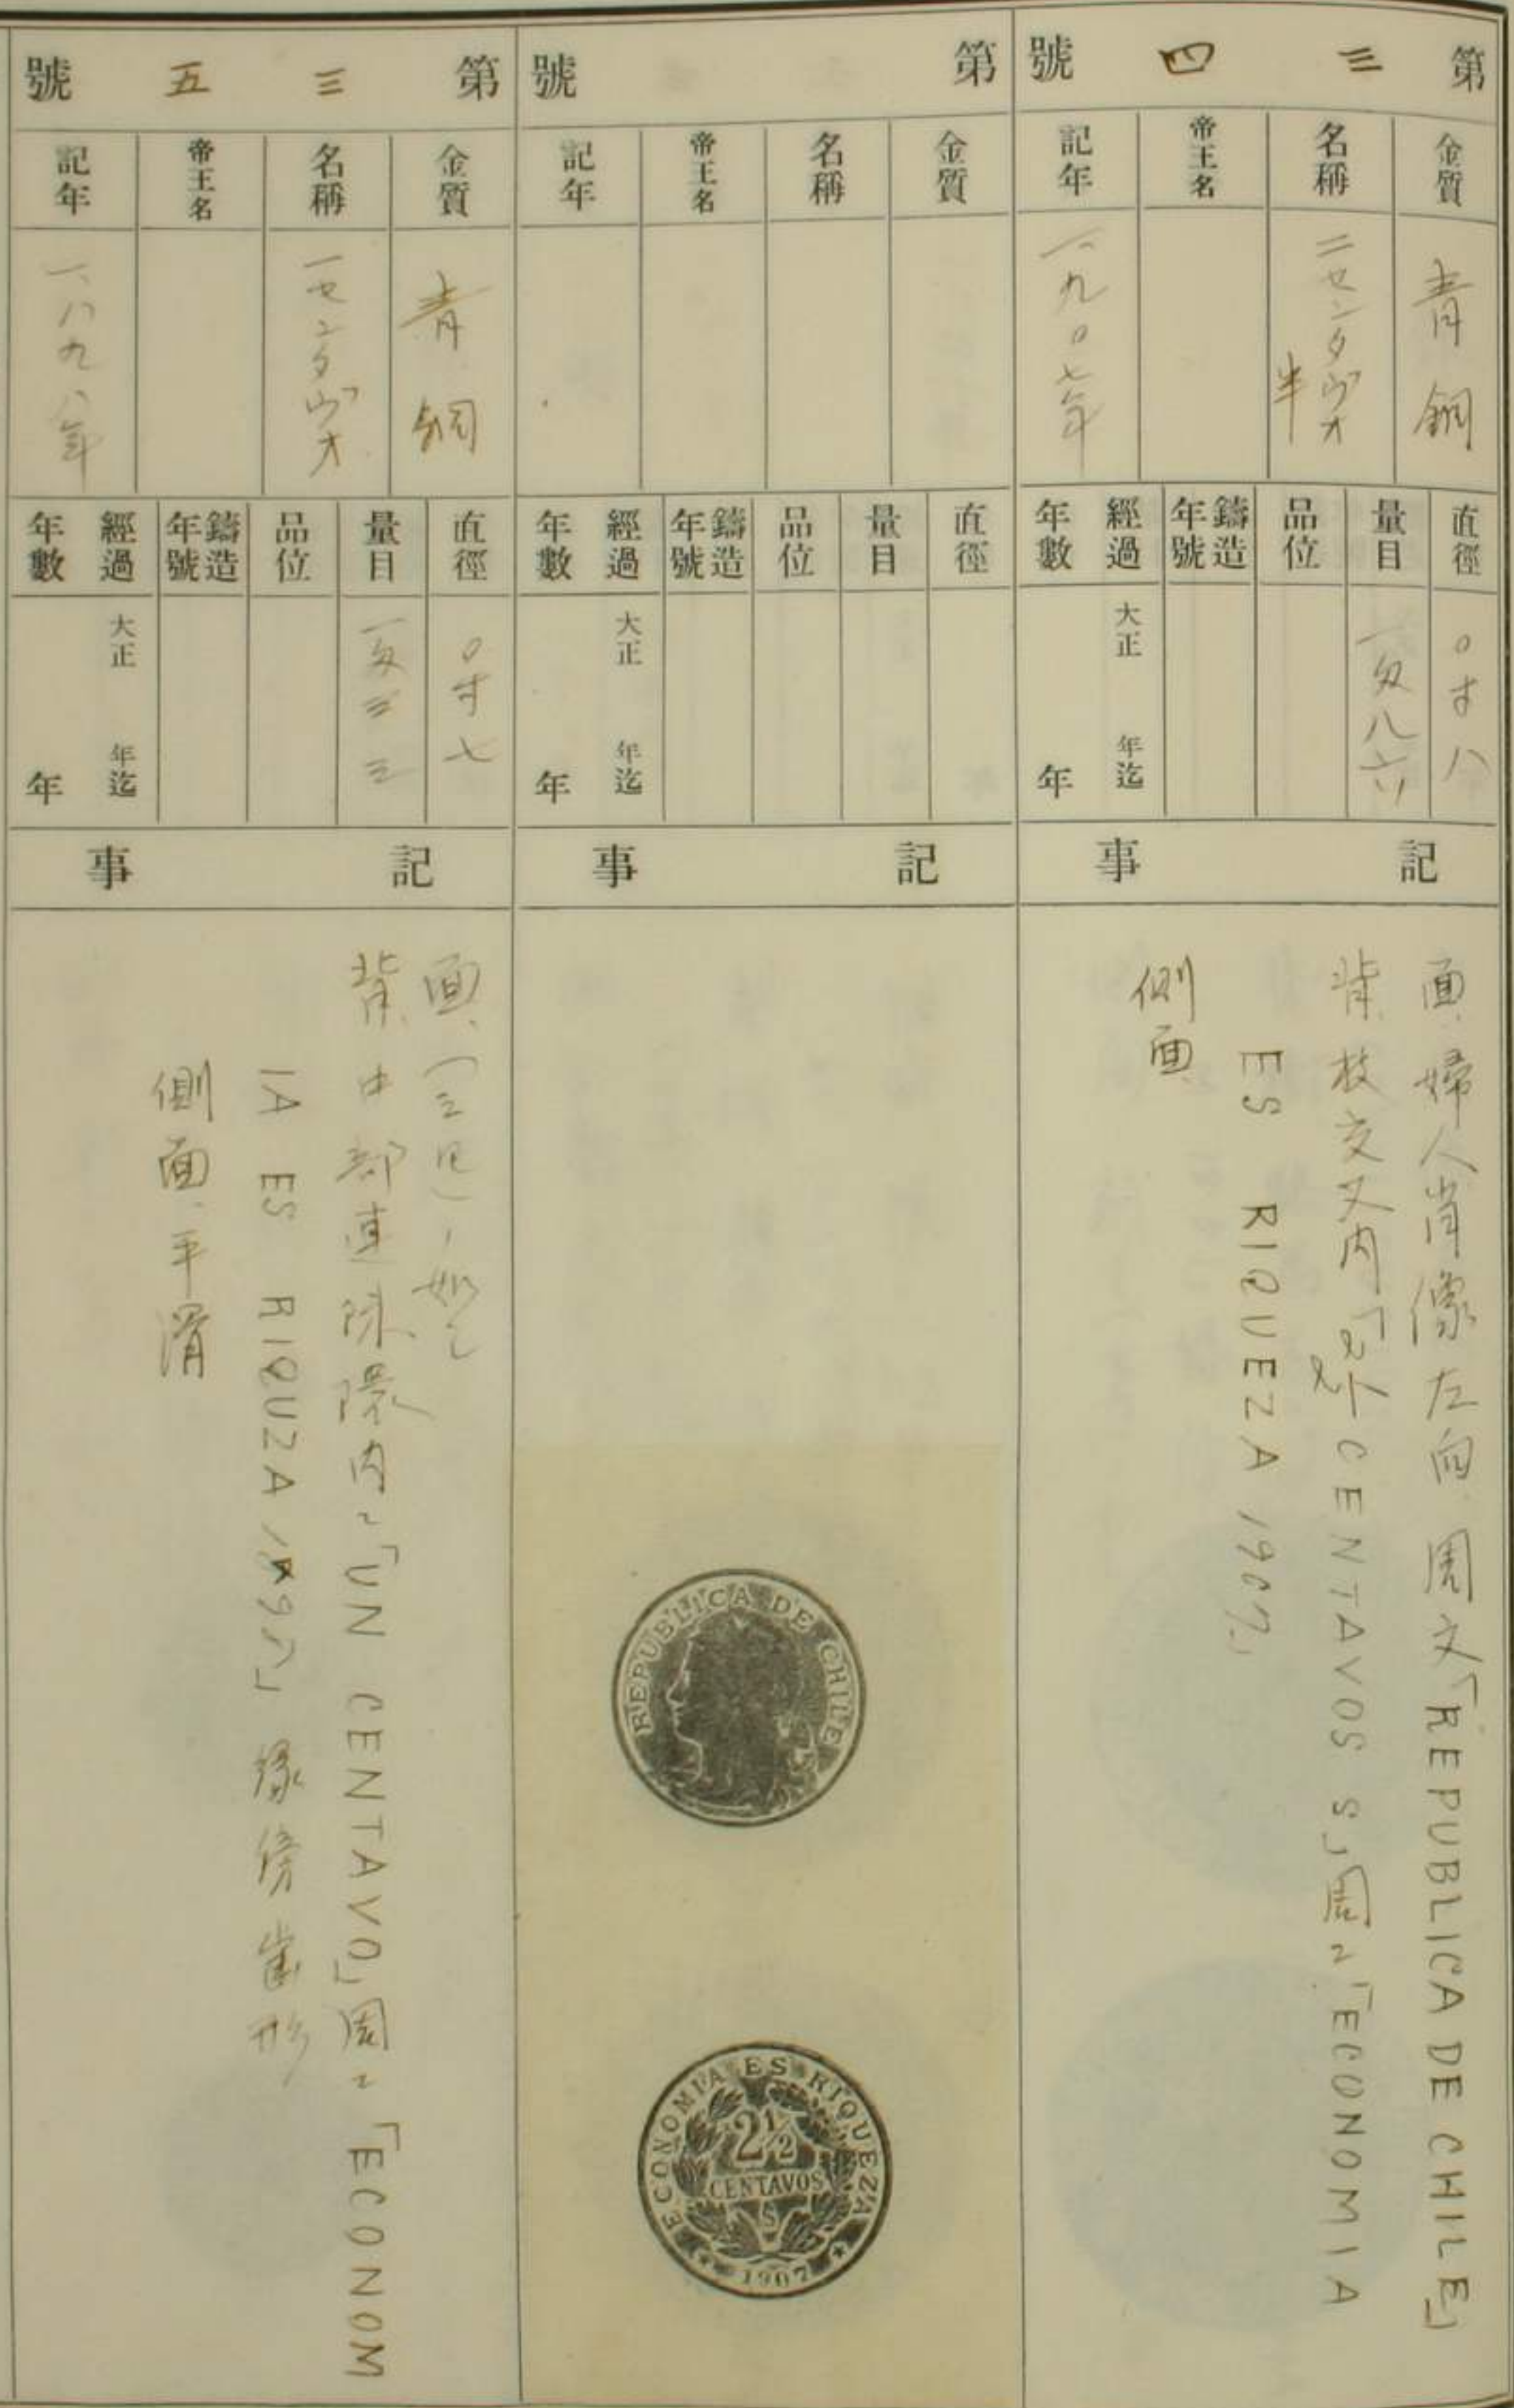 第三四號
金質
青銅
名稱
二センタヴォ半
帝王名
記年
一、九〇七年
直徑
〇寸八
量目
一匁八六
品位
鑄造年號
經過年數
大正 年迄
年
記事
面、婦人肖像左向、周文「REPUBLICA DE CHILE」
背、枝交叉内「2½ CENTAVOS S」周ニ「ECONOMIA
ES RIQUEZA 1907」
側面
第 號
金質
名稱
帝王名
記年
直徑
量目
品位
鑄造年號
經過年數
大正 年迄
年
記事
REPUBLICA DE CHILE
ECONOMIA ES RIQUEZA
2½
CENTAVOS
S
1907
第三五號
金質
青銅
名稱
一センタヴォ
帝王名
記年
一、八九八年
直徑
〇寸七
量目
一匁三三
品位
鑄造年號
經過年數
大正 年迄
年
記事
面、
背、中部連珠環内ニ「UN CENTAVO」周ニ「ECONOM
IA ES RIQUZA 1898」縁傍歯形
側面、平滑